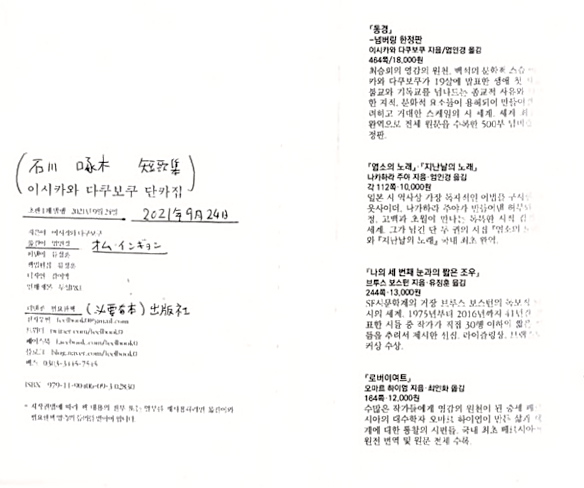 (石川 啄木 短歌集)
이시카와 다쿠보쿠 단카집
초판 1쇄 발행 2021년 9월 24일
2021年9月24日
지은이 이시카와 다쿠보쿠
옮긴이 엄인경
オム·インギョン
펴낸이
책임편집
디자인
펴낸곳 필요한책
(必要な本)出版社
전자우편
트위터
페이스북
블로그
팩스 0303-3445-7545
ISBN
* 저작권법에 따라 이 책 내용의 전부 또는 일부를
『동경』
-넘버링 한정판
이시카와 다쿠보쿠 지음/엄인경 옮김
464쪽/18,000원
최승희의 영감의 원천, 백석의 문학적 스승
카와 다쿠보쿠가 19살에 발표한 생애 첫
불교와 기독교를 넘나드는 종교적 사유와
한 지적, 문화적 요소들이 용해되어 만들어
려하고 거대한 스케일의 시 세계. 세계 최
완역으로 전체 원문을 수록한 500부 넘버
정판.
『염소의 노래』·『지난날의 노래』
나카하라 주야 지음·엄인경 옮김
각 112쪽·10,000원
일본 시 역사상 가장 독자적인 어법을 구사
웃사이더, 나카하라 주야가 만들어낸 허무
정, 고백과 초월이 만나는 독특한 시적
세계. 그가 남긴 단 두 권의 시집 『염소의
와 『지난날의 노래』 국내 최초 완역.
『나의 세 번째 눈과의 짧은 조우』
브루스 보스턴 지음·유정훈 옮김
244쪽·13,000원
SF시문학계의 거장 브루스 보스턴의 독보적
시의 세계. 1975년부터 2016년까지 41년간
표한 시들 중 작가가 직접 30행 이하의 짧은
들을 추려서 제시한 선집. 라이슬링상,
커상 수상.
『로버이여트』
오마르 하이염 지음·최인화 옮김
164쪽·12,000원
수많은 작가들에게 영감의 원천이 된 중세 페
시아의 대수학자 오마르 하이염이 만든 삶과
계에 대한 통찰의 시편들. 국내 최초 페르시아
원전 번역 및 원문 전체 수록.